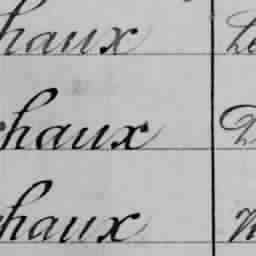 haux
haux
haux